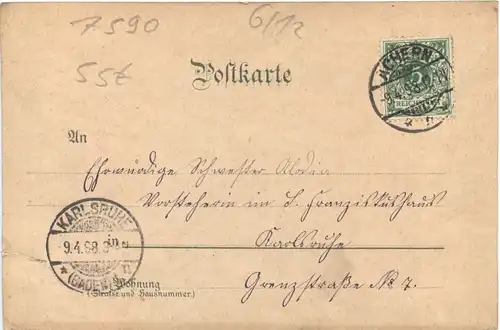 7590
6/12
55t
Postkarte
ACHERN
9.4.98
REICHSPOST
An
Ehrwürdige Schwester Alodia
Vorsteherin im S. Franziskushaus
Karlsruhe
Grenzstraße No 7.
KARLSRUHE
9.4.98
(BADEN)
Wohnung
(Straße und Hausnummer.)